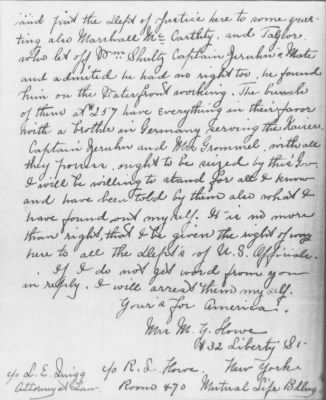 and put the Dept of Justice here to some
ting also Marshall Mc Carthty. and Taylor.
who let off Wm Shultz Captain Jeruhn's Mate
and admited he had no right too, he found
him on the Waterfront working. The bunch
of them at #257 have everything in their favor
with a brother in Germany serving the Kaiser.
Captain Jeruhn and Mrs Grommel, with all
they possess, ought to be seized by this Gov.
I will be willing to stand for all I know
and have been told by them also what I
have found out myself. It is no more
than right, that I be given the right of way
here to all the Dept's of U.S. Officials.
If I do not get word from you
in reply. I will arrest them myself.
Your's for America.
Mrs M. Y. Howe
#32 Liberty St-
c/o L. E. Quigg c/o R. L. Howe. New York
Attorney at Law. Room 470 Mutual Life Bdlng.